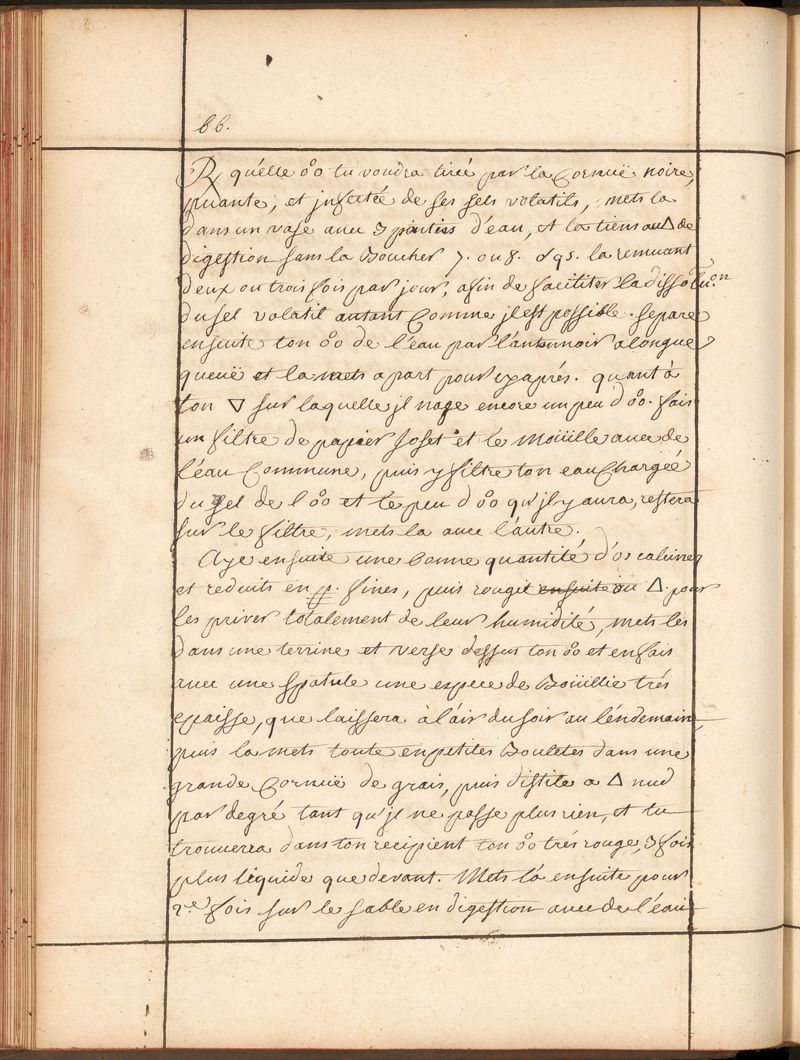 66.
℞ quélle o°o tu voudra tirée par la Cornuë noire,
puante, et jnfectée de ses sels volatils, mets la
dans un vase avec 3 parties d'eau, et la tiens au △ de
digestion sans la Boucher 7. ou 8. la remuant
deux ou trois fois par jour, afin de faciliter la dissolu.on
du sel volatil autant Comme jl est possible. separe
ensuite ton o°o de l'éau par l'antonnoir a longue
queuë et la mets a part pour cy aprés. quant à
ton ▽ sur laquelle jl nage encore un peu d'o°o. fais
un filtre de papier Josef et le moüille avec de
l'éau Commune, puis y filtre ton eau Chargée
du sel de l'o°o et le peu d'o°o qu'jl y aura, restera
sur le filtre, mets la avec l'autre.
Aye ensuite une bonne quantité d'os calcinez
et reduits en p. fines, puis rougit ensuite au △. pour
les priver totalement de leur humidité, mets les
dans une terrine et verse dessus ton o°o et en fais
avec une spatule une espece de Boüillie trés
epaisse, que laissera à l'air du soir au léndemain,
puis la mets toute en petites Bouletes dans une
grande Cornuë de grais, puis distile a △ nud
par degré tant qu'jl ne passe plus rien, et tu
trouvera dans ton recipient ton o°o trés rouge, 3 fois
plus liquide que devant. Mets la ensuite pour
2.e fois sur le sable en digestion avec de l'éau